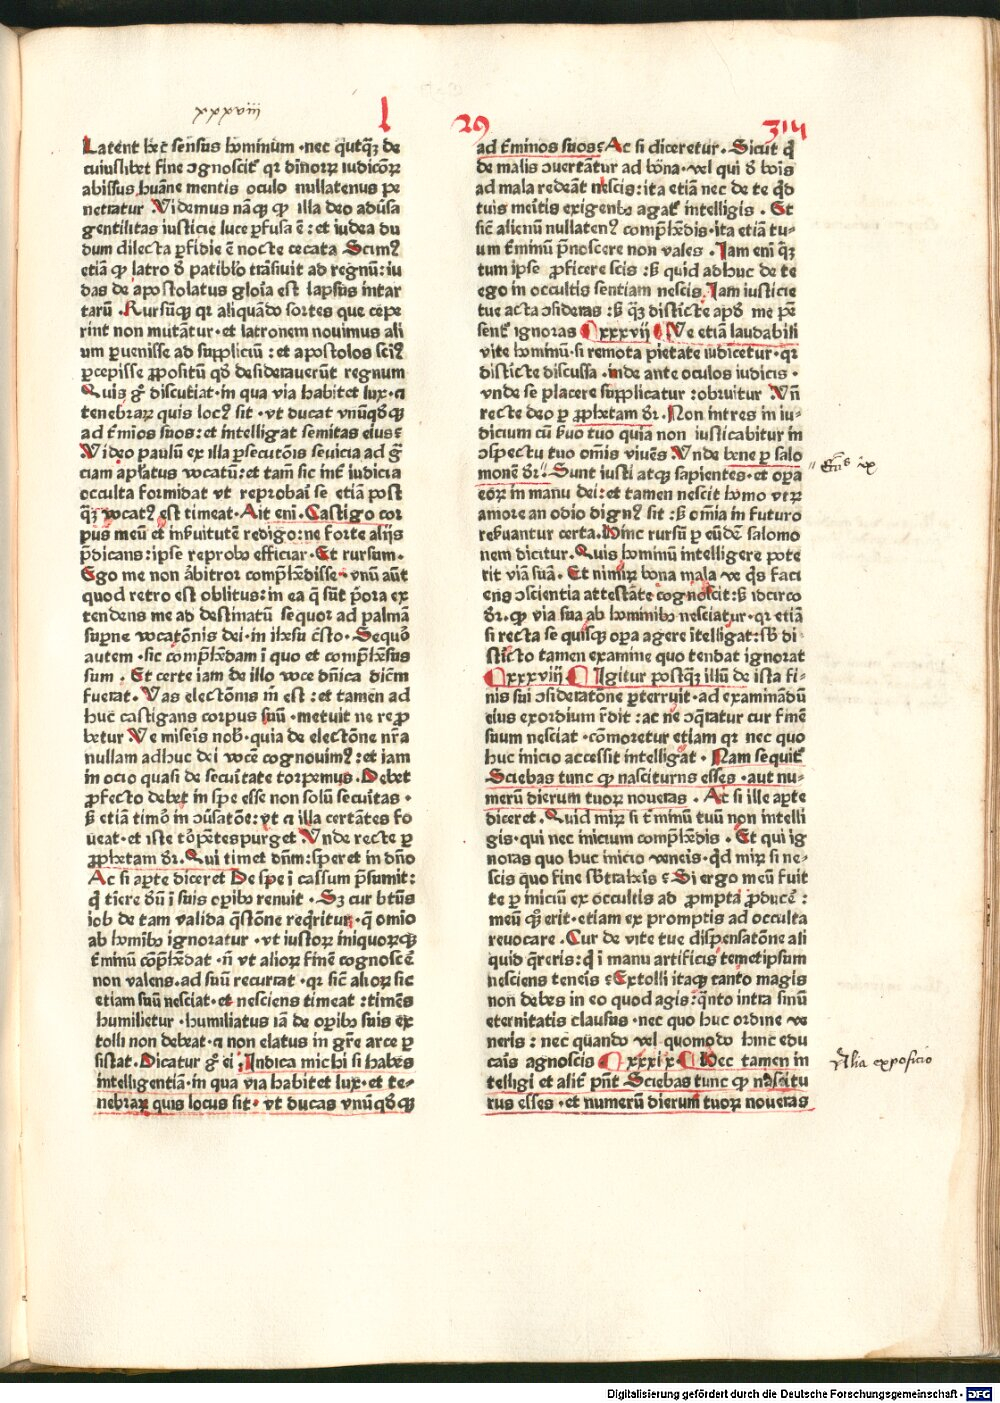 xxxviii
l
29
314
Latent hec̄ sensus hominum · nec qͥutqꝫ de
cuiuslibet fine ꝯgnoscit᷑ qꝛ diu̅noꝝ iudicōꝝ
abissus hua̅ne mentis oculo nullatenus pe
netratur Videmus nāqꝫ ꝙ illa deo adu̅sa
gentilitas iusticie luce ꝑfusa ē : et iudea du
dum dilecta ꝑfidie ē nocte cecata Scimꝰ
etiā ꝙ latro ð patiblo̅ trāsiuit ad regnū : iu
das de apostolatus gloīa est lapsus in tar
tarū · Rursūqꝫ qꝛ aliquādo sortes que cepe
rint non mutātur · et latronem nouimus ali
um ꝑuenisse ad suppliciū : et apostolos scimꝰ
ꝑcepisse ꝓpositū qd̄ desiderauerūt regnum
Quis gͦ discutiat · in qua via habitet lux · ⁊
tenebraꝝ quis locꝰ sit · vt ducat vnūqd̄qꝫ
ad t̄mīos suos : et intelligat semitas eius
Video paulū ex illa ꝑsecutōis seuicia ad grā
ciam apl̄atus vocatū : et tam̄ sic int᷑ iudicia
occulta formidat vt reprobari se etiā post
qꝫ vocatꝰ est timeat · Ait eni̅ · Castigo cor
pus meū et in ẜuitutē redigo : ne forte alijs
p̄dicans : ipse reprobo efficiar · Et rursum ·
Ego me non arbitror comp̄hēdisse · vnū aūt
quod retro est oblitus : in ea q̄ sūt p̄ora ex
tendens me ad destinatū sequor ad palmā
suꝑne vocatōnis dei · in ih̄esu cr̄sto · Sequoꝛ
autem · sic comp̄hēdam ī quo et comp̄hēsus
sum · Et certe iam de illo voce dn̄ica dictm̄
fuerat · Vas electōnis m̄ est : et tamen ad
huc castigans corpus suū · metuit ne repꝛo
betur Ve miseris nob̄ · quia de electōne nr̄a
nullam adhuc dei vocē cognouimꝰ : et iam
in ocio quasi de secūitate torpemus · Debet
ꝓfecto debet in spe esse non solū secūitas ·
ẜꝫ etiā timoꝛ in ꝯu̅satōe : vt ⁊ illa certātes fo
ueat · et iste torpētes purget Vnde recte ꝑ
ꝓphetam dr̄ · Qui timet dn̄m : speret in dn̄o
Ac si aꝑte diceret De spe ī cassum p̄sumit :
q̄ tiēre dn̄ū ī suis oꝑibꝰ renuit · Sꝫ cur btūs
iob de tam valida q̄stōne reqͥritur · q̄ omīo
ab homībꝰ ignoratur · vt iustoꝝ iniquoꝝqꝫ
t̄minū cōp̄hēdat · n̄ vt alioꝝ finē cognoscē
non valens · ad suū recurrat · qꝛ sic̄ alioꝝ sic
etiam suū nesciat · et nesciens timeat : timēs
humilietur · humiliatus iā de oꝑibꝰ suis ex
tolli non debeat · ⁊ non elatus in gr̄e arce ꝑ
sistat · Dicatur gͦ ei · Indica michi si habes
intelligentiā · in qua via habitet lux · et te-
nebraꝝ quis locus sit · vt ducas vnūqd̄qꝫ
ad t̄minos suos Ac si diceretur · Sicut q̄
de malis ꝯuertātur ad bōna · vel qui ð bōis
ad mala redeāt nescis : ita etiā nec de te qd̄
tuis meītis exigentibꝰ agat᷑ intelligis · Et
sic̄ alienū nullatenꝰ comp̄hēdis · ita etiā tu-
um t̄minū p̄noscere non vales · Jam eni̅ qꝫ
tum ipse ꝓficere scis : ẜꝫ quid adhuc de te
ego in occultis sentiam nescis · Jam iusticie
tue acta ꝯsideras : ẜꝫ qꝫ disticte apd̄ me pē
sent᷑ ignoras xxxvij Ve etiā laudabili
vite hominū · si remota pietate iudicetur · qꝛ
disticte discussa · inde ante oculos iudicis ·
vnde se placere supplicatur : obruitur Vn̄
recte deo ꝑ ꝓphetam dr̄ · Non intres in iu-
dicium cū ẜuo tuo quia non iusticabitur in
ꝯspectu tuo om̅is viuēs Vnde bene ꝑ salo
monē dr̄ · Sunt iusti atqꝫ sapientes · et oꝑa
eoꝝ in manu dei : et tamen nescit homo vtꝝ
amore an odio dignꝰ sit : ẜꝫ om̅ia in futuro
reẜuantur certa · Hinc rursū ꝑ eūdē salomo
nem dicitur · Quis hominū intelligere pote
rit viā suā · Et nimiꝝ bona mala ve qͥs faci
ens ꝯscientia attestāte cognoscit : ẜꝫ idcirco
dr̄ · ꝙ via sua ab hominibꝰ nesciatur · qꝛ etiā
si recta se quisqꝫ oꝑa agere ītelligat : sb̄ di-
sticto tamen examine quo tendat ignorat
xxxviij Igitur postqꝫ illū de ista fi-
nis sui ꝯsideratōne ꝑterruit · ad examinādū
eius exordium rēdit : ac ne ꝯq̄ratur cur finē
suum nesciat · cōmoretur etiam qꝛ nec quo
huc inicio accessit intelligat · Nam sequit᷑
Sciebas tunc ꝙ nasciturus esses · aut nu-
merū dierum tuoꝝ noueras · Ac si ille aꝑte
diceret · Quid miꝝ si t̄minū tuū non intelli
gis · qui nec inicium comp̄hēdis · Et qui ig
noras quo huc inicio veneis · qd̄ miꝝ si ne-
scis quo fine sb̄traheis Si ergo meū fuit
te ꝑ iniciū ex occultis ad ꝓmpta ꝓducē :
meū qꝫ erit · etiam ex promptis ad occulta
reuocare · Cur de vite tue dispensatōne ali
quid q̄reris : q̄ ī manu artificis temetipsum
nesciens teneis Extolli itaqꝫ tanto magis
non debes in eo quod agis : q̄nto intra sinū
eternitatis clausus · nec quo huc ordine ve
neris : nec quādo vel quomodo hinc edu
caīs agnoscis xxxix Hec tamen in
telligi et alit᷑ pn̄t Sciebas tunc ꝙ nascitu
rus esses · et numerū dierum tuoꝝ noueras
ix
Alia exposicio
Digitalisierung gefördert durch die Deutsche Forschungsgemeinschaft · DFG